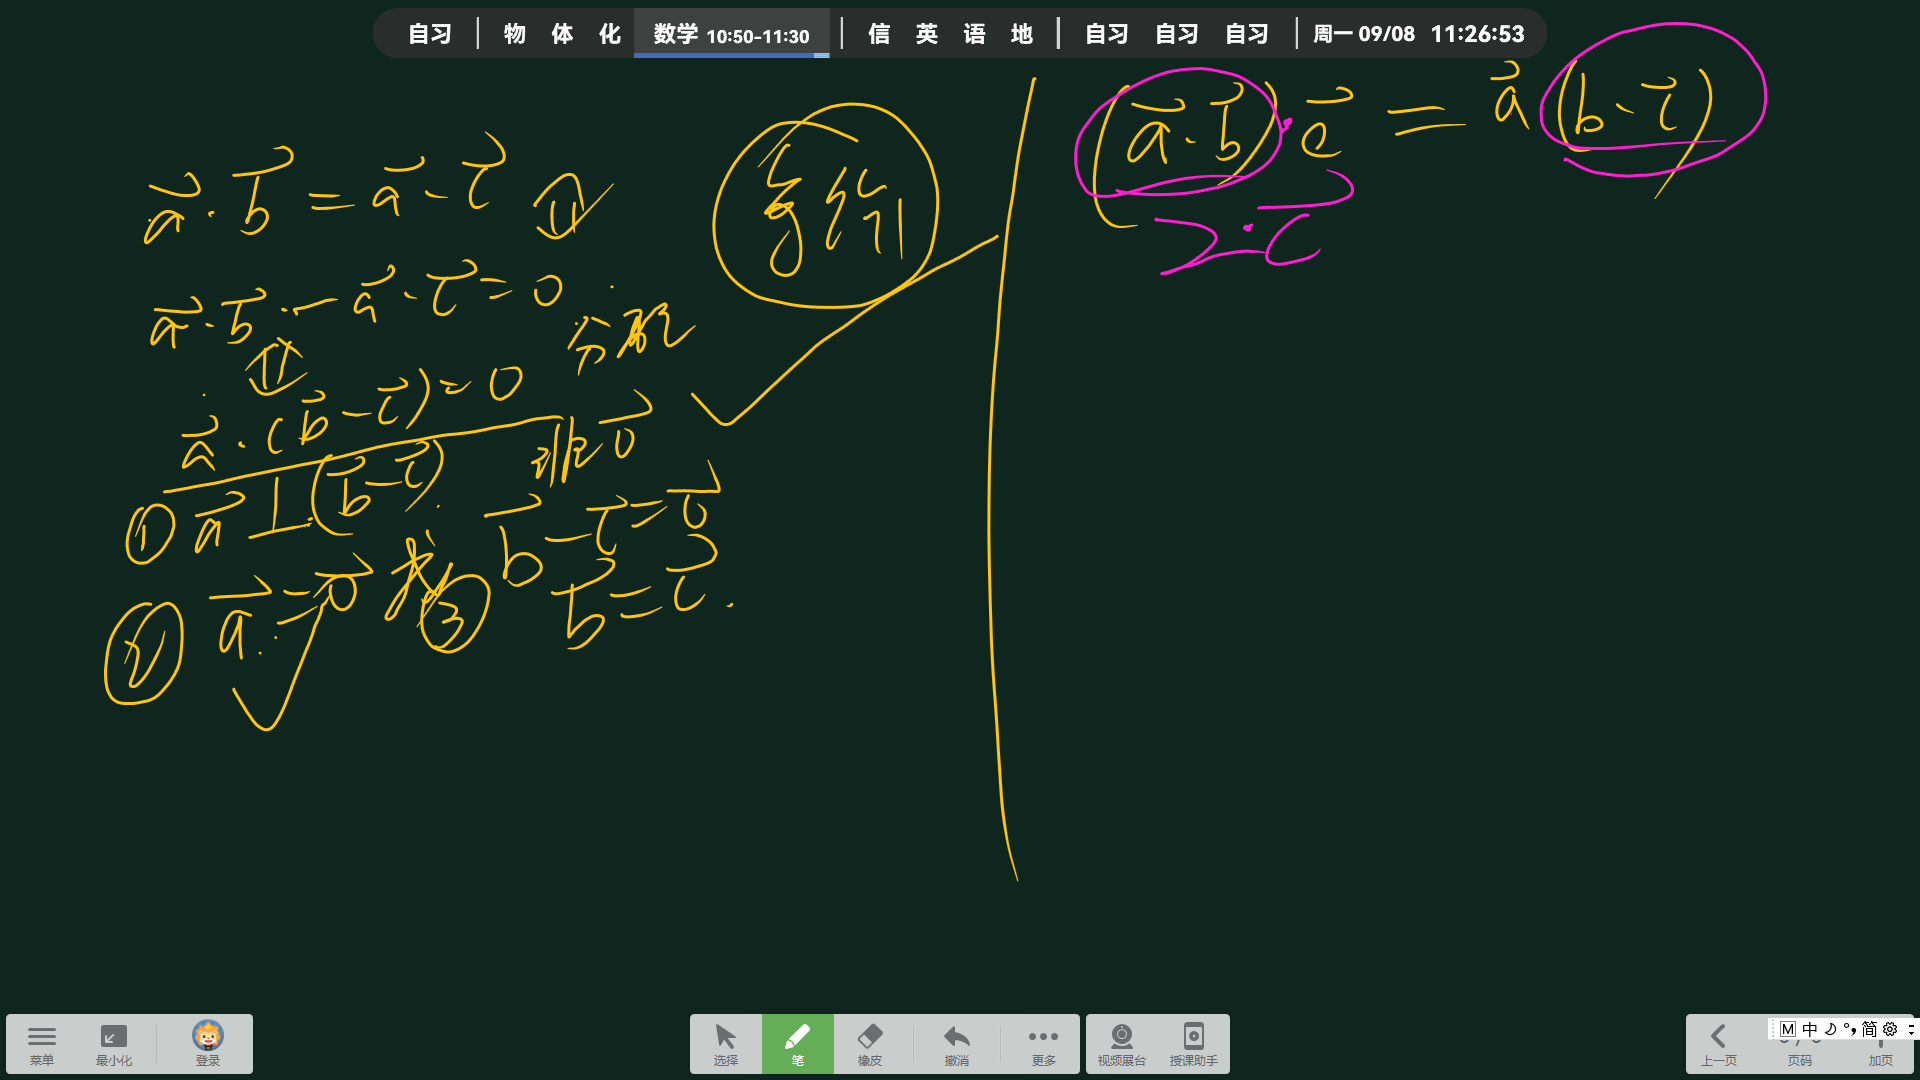 自习 | 物 体 化 数学 10:50-11:30 | 信 英 语 地 | 自习 自习 自习 | 周一 09/08 11:26:53
a⃗·b⃗ = a⃗·c⃗
a⃗·b⃗ - a⃗·c⃗ = 0 分配
a⃗·(b⃗-c⃗) = 0
① a⃗⊥(b⃗-c⃗) 非0⃗
② a⃗ = 0⃗ 或 ③ b⃗-c⃗ = 0⃗
b⃗ = c⃗
(a⃗·b⃗)·c⃗ = a⃗(b·c⃗)
2·c⃗
菜单 最小化 登录
选择 笔 橡皮 撤消 更多
视频展台 授课助手
上一页 页码 加页
M 中 简